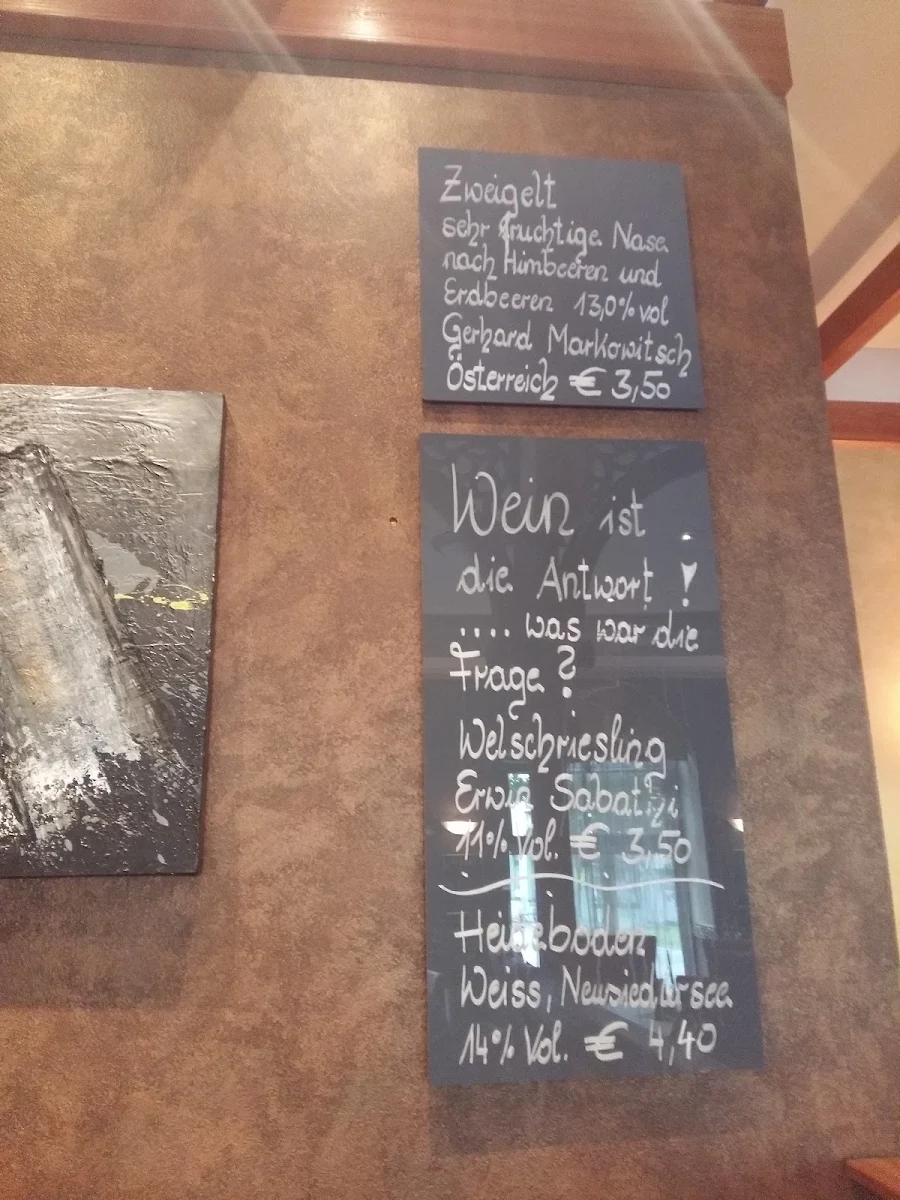 Zweigelt
sehr fruchtige Nase
nach Himbeeren und
Erdbeeren 13,0% vol
Gerhard Markowitsch
Österreich € 3,50
Wein ist
die Antwort !
.... was war die
Frage ?
Welschriesling
Erwin Sabathi
11% Vol. € 3,50
Heideboden
Weiss, Neusiedlersee
14% Vol. € 4,40